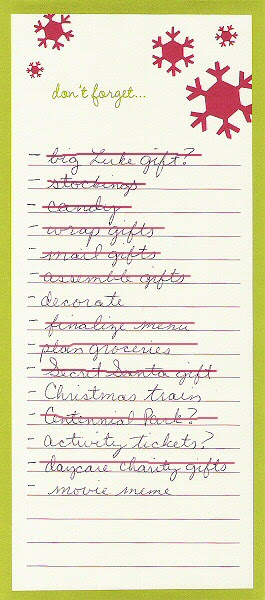 don't forget...
- big Luke gift?
- stockings
- candy
- wrap gifts
- mail gifts
- assemble gifts
- decorate
- finalize menu
- plan groceries
- Secret Santa gift
- Christmas train
- Centennial Park?
- activity tickets?
- daycare charity gifts
- movie meme